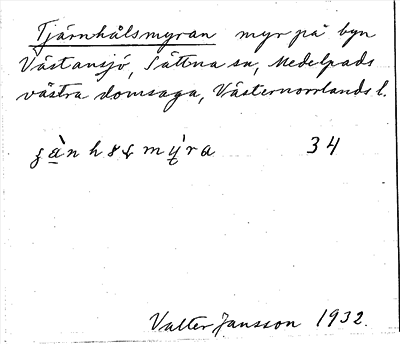 Tjärnhålsmyran myr på byn
Västansjö, Sättna sn, Medelpads
västra domsaga, Västernorrlands l.
34
Valter Jansson 1932.